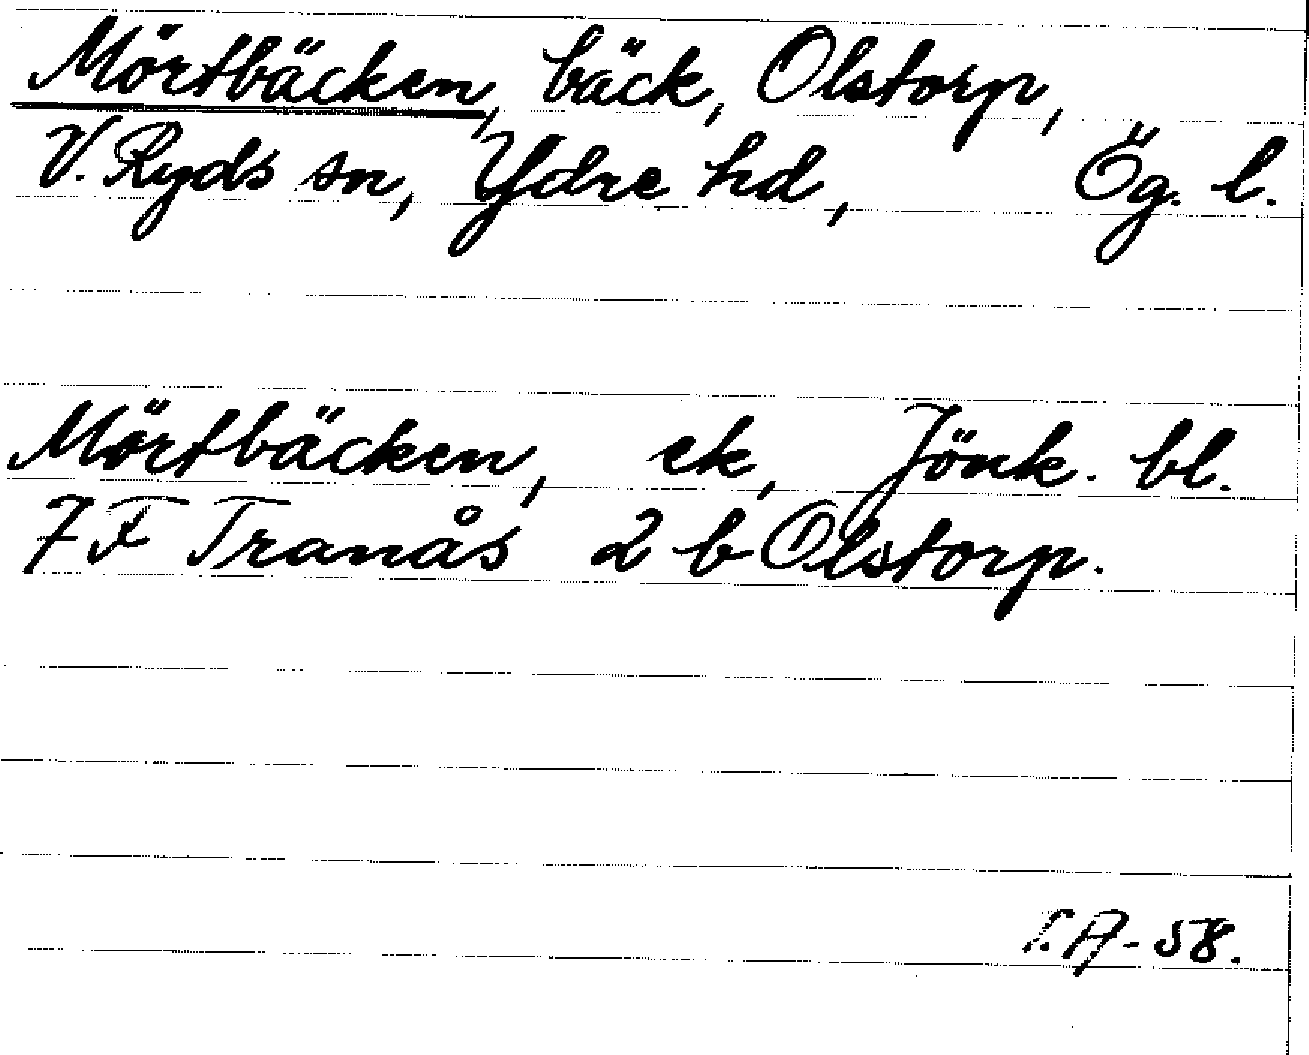 Mörtbäcken, bäck, Olstorp,
V. Ryds sn, Ydre hd, Ög. l.
Mörtbäcken, ek, Jönk. bl.
7 F Tranås 2 b Olstorp.
A-58.